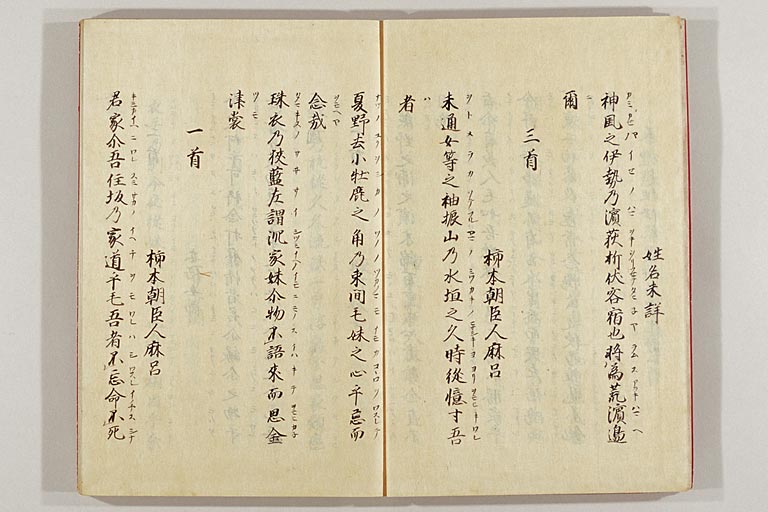 姓名未詳
神風之伊勢乃濱荻折伏客宿也将為荒濱邊
爾
三首
柿本朝臣人麻呂
未通女等之袖振山乃水垣之久時從憶寸吾
者
夏野去小牡鹿之角乃束間毛妹之心乎忘而
念哉
珠衣乃狭藍左謂沉家妹尒物不語來而思金
津裳
一首
柿本朝臣人麻呂
君家尒吾住坂乃家道乎毛吾者不忘命不死